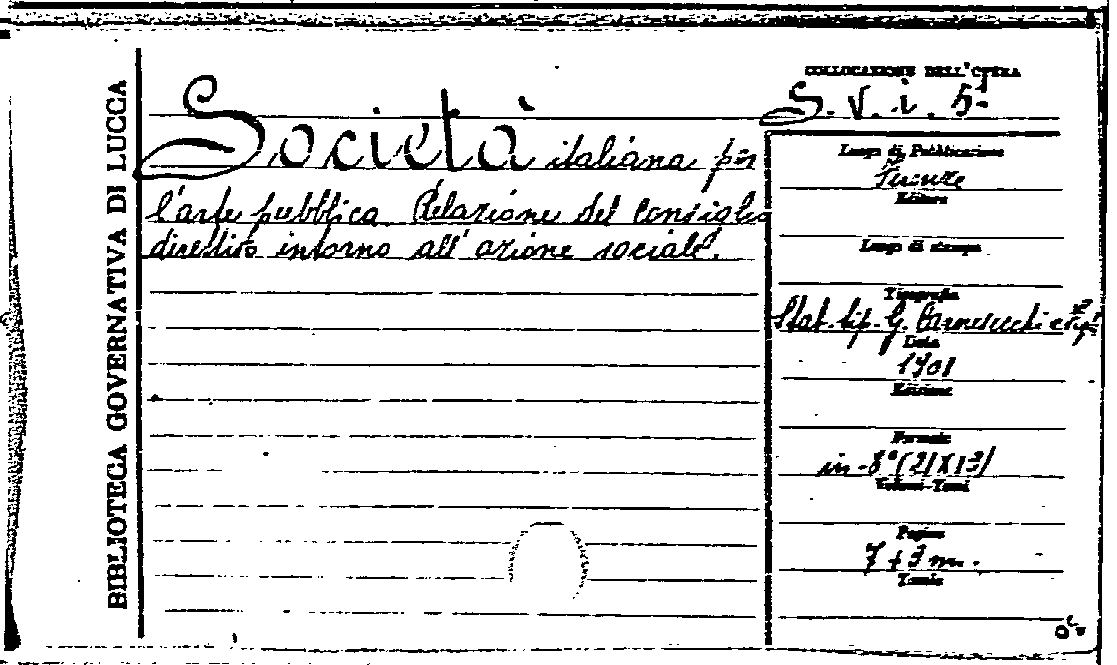 BIBLIOTECA GOVERNATIVA DI LUCCA
Società italiana per
l'arte pubblica. Relazione del Consiglio
direttivo intorno all'azione sociale.
COLLOCAZIONE DELL'OPERA
S. V. i. 5
Luogo di Pubblicazione
Firenze
Editore
Luogo di stampa
Tipografia
Stab. tip. G. Carnesecchi e figli
Data
1901
Edizione
Formato
in-8° (21X13)
Volumi-Tomi
Pagine
7 + 3 m.